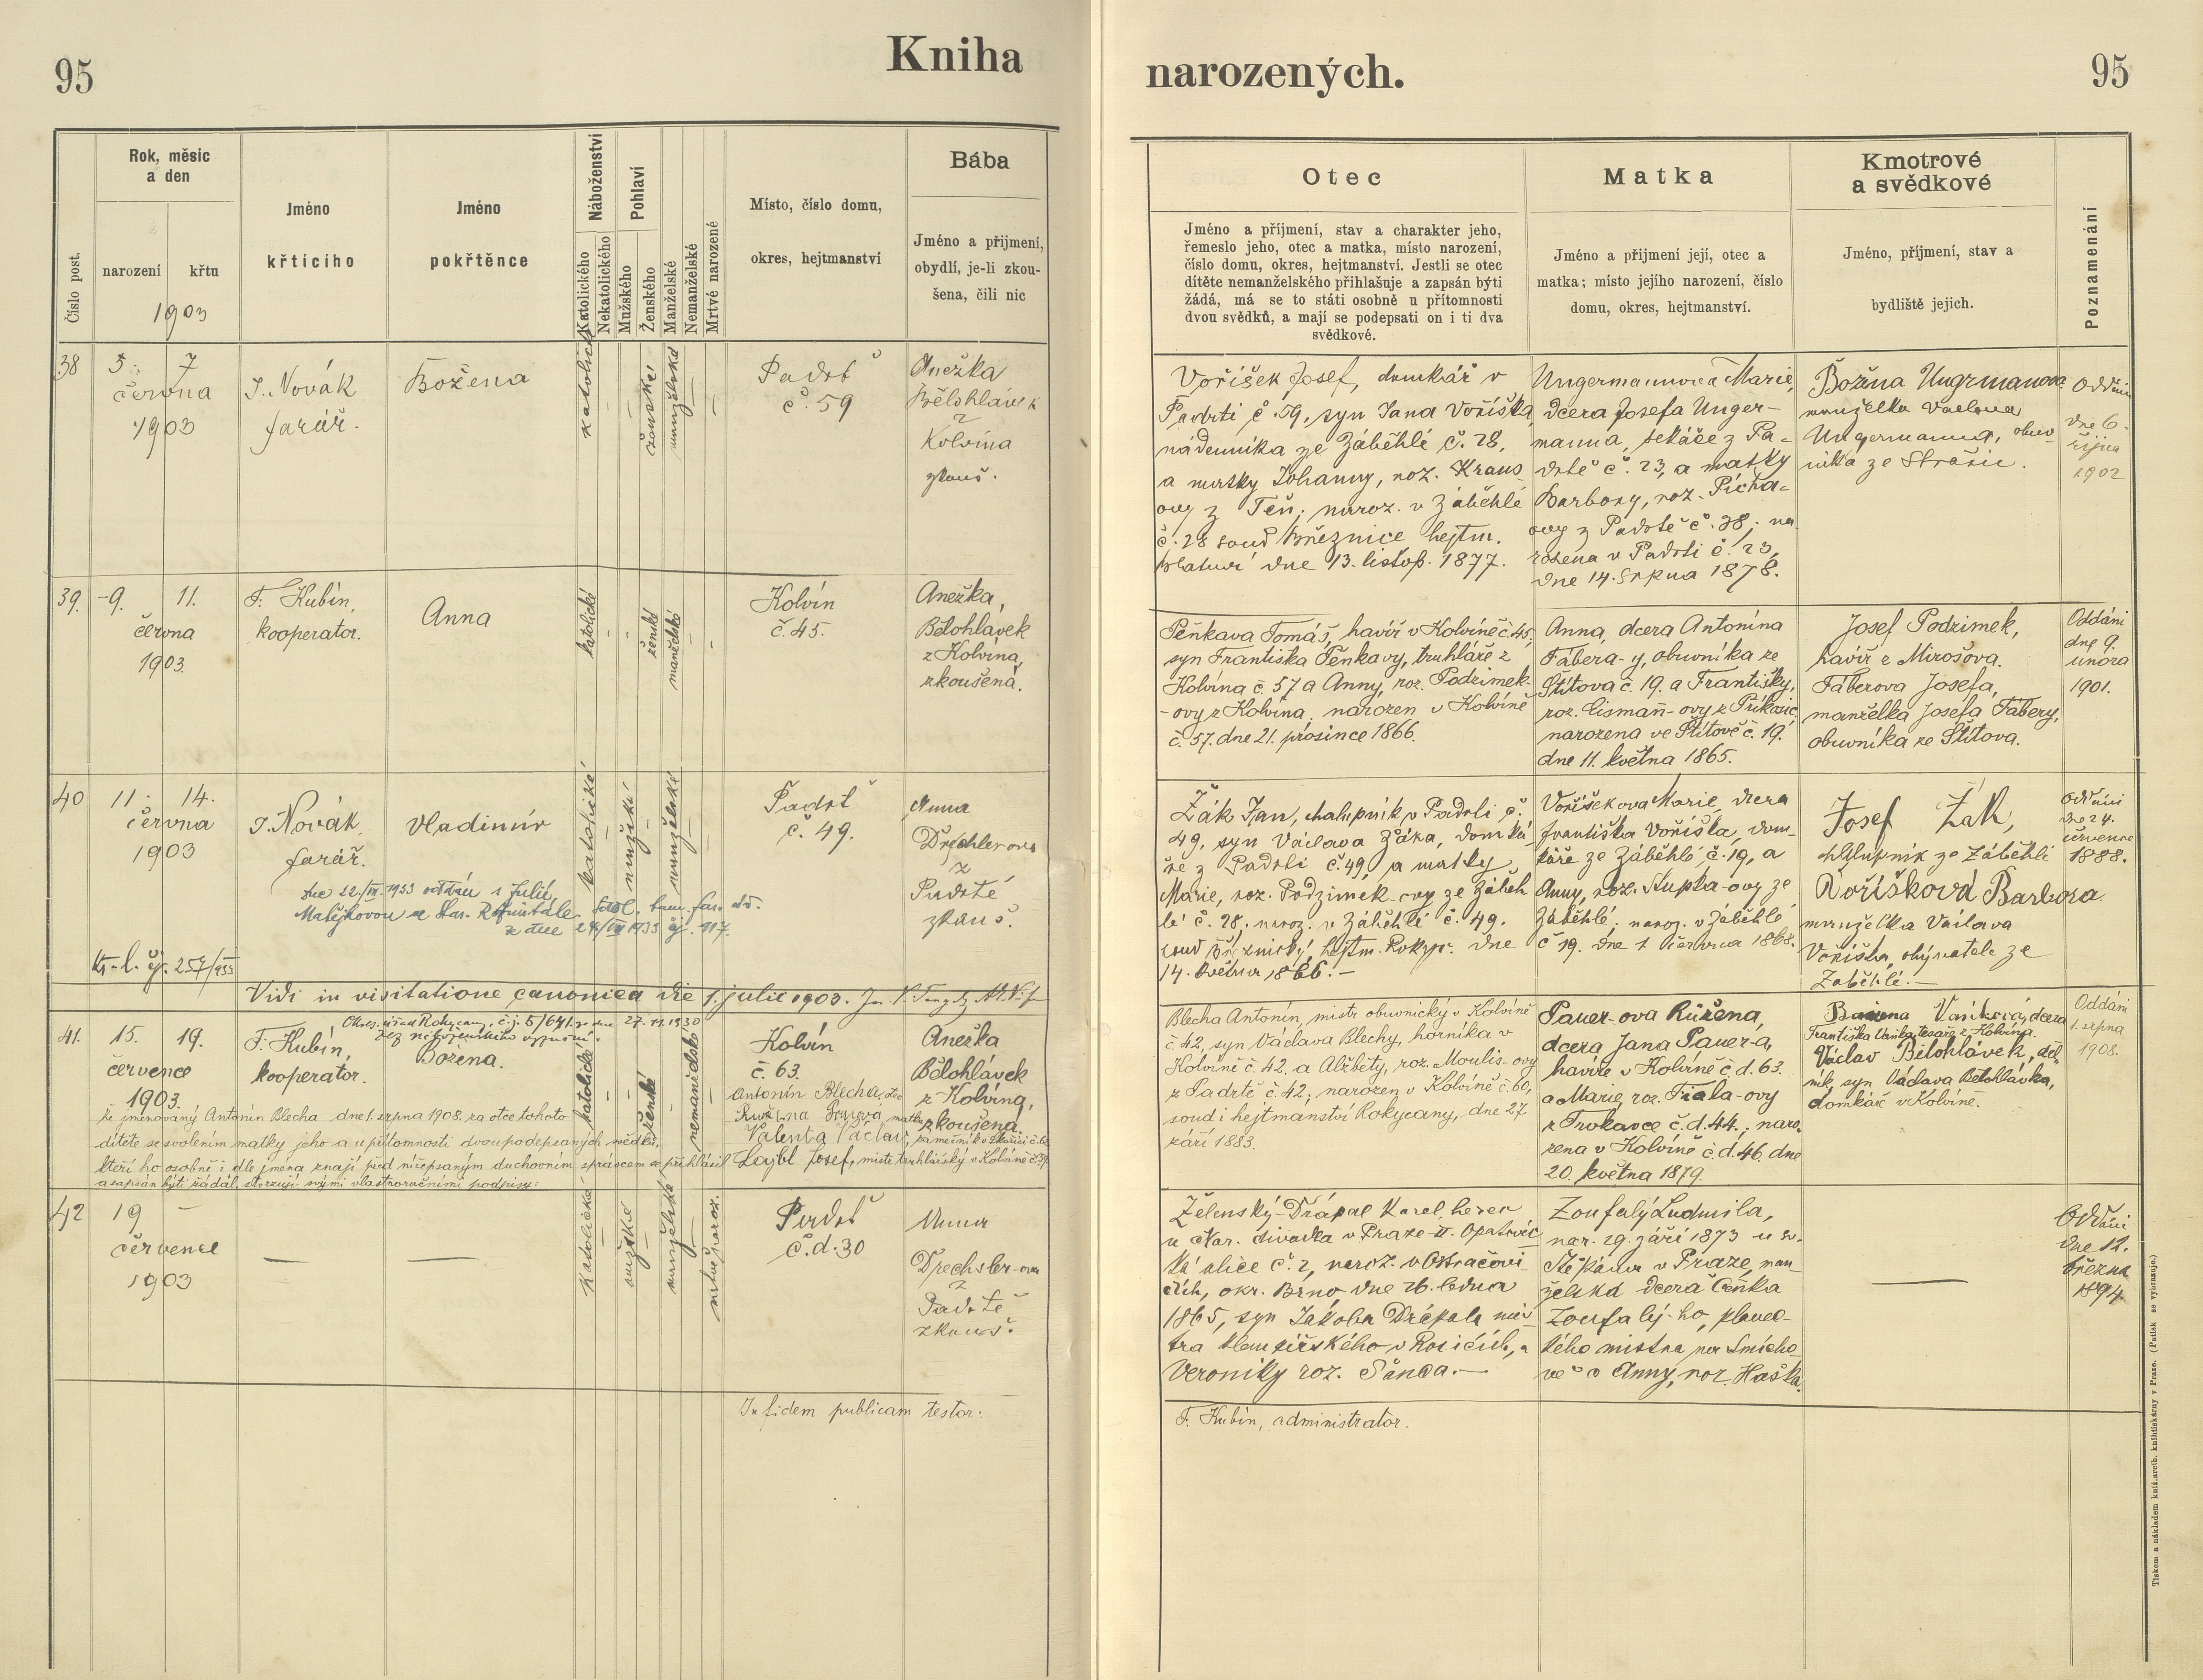 95
Kniha
narozených.
95
Číslo post.
Rok, měsíc
a den
narození
křtu
1903
Jméno
křticího
Jméno
pokřtěnce
Náboženství
Katolického
Nekatolického
Pohlaví
Mužského
Ženského
Manželské
Nemanželské
Mrtvé narozené
Místo, číslo domu,
okres, hejtmanství
Bába
Jméno a přijmení,
obydlí, je-li zkou-
šena, čili nic
Otec
Jméno a příjmení, stav a charakter jeho,
řemeslo jeho, otec a matka, místo narození,
číslo domu, okres, hejtmanství. Jestli se otec
dítěte nemanželského přihlašuje a zapsán býti
žádá, má se to státi osobně u přítomnosti
dvou svědků, a mají se podepsati on i ti dva
svědkové.
Matka
Jméno a přijmení její, otec a
matka; místo jejího narození, číslo
domu, okres, hejtmanství.
Kmotrové
a svědkové
Jméno, příjmení, stav a
bydliště jejich.
Poznamenání
38
5.
7
června
1903
J. Novák
farář.
Božena
katolické
ženské
manželské
Padrť
č. 59
Anežka
Bělohlávek
z
Kolvína
zkouš.
Voříšek Josef, domkář v
Padrti č. 59, syn Jana Voříška,
nádenníka ze Záběhlé č. 28,
a matky Johanny, roz. Kraus-
ovy z Těň; naroz. v Záběhlé
č. 28 soud Březnice hejtm.
Blatná dne 13. listop. 1877.
Ungermannova Marie,
dcera Josefa Unger-
manna, sekáče z Pa-
drtě č. 23, a matky
Barbory, roz. Pícha-
ovy z Padrtě č. 38; na-
rozena v Padrti č. 23,
dne 14. srpna 1878.
Božena Ungrmanova
manželka Václava
Ungermanna, obuv-
níka ze Strašic.
Oddáni
dne 6.
října
1902
39.
9.
11.
června
1903.
F. Kubín,
kooperator.
Anna
katolické
ženské
manželské
Kolvín
č. 45.
Anežka,
Bělohlávek
z Kolvína,
zkoušená.
Peňkava Tomáš, havíř v Kolvíně č. 45,
syn Františka Peňkavy, truhláře z
Kolvína č. 57 a Anny, roz. Podzimek-
-ovy z Kolvína, narozen v Kolvíně
č. 57. dne 21. prosince 1866.
Anna, dcera Antonína
Fábera-y, obuvníka ze
Štítova č. 19. a Františky,
roz. Cismañ-ovy z Příkosic,
narozena ve Štítově č. 19.
dne 11. května 1865.
Josef Podzimek,
havíř z Mirošova.
Fáberova Josefa,
manželka Josefa Fábery,
obuvníka ze Štítova.
Oddáni
dne 9.
února
1901.
40
11.
14.
června
1903
J. Novák
farář.
Vladimír
katolické
mužské
manželské
Padrť
č. 49.
Anna
Drechslerova
z
Padrtě
zkouš.
Žák Jan, chalupník v Padrti č.
49, syn Václava Žáka, domká-
ře z Padrti č. 49, a matky
Marie, roz. Podzimek-ovy ze Záběh-
lé č. 28, naroz. v Záběhlé č. 49.
soud březnický, hejtm. Rokyc. dne
14. května 1866. –
Voříšekova Marie, dcera
Františka Voříška, dom-
káře ze Záběhlé č. 19, a
Anny, roz. Stupka-ovy ze
Záběhlé, naroz. v Záběhlé
č 19. dne 1. června 1868.
Josef Žák,
chalupník ze Záběhlé
Voříšková Barbora
manželka Václava
Voříška, obývatele ze
Záběhlé. –
Oddáni
dne 24.
července
1888.
dne 22/VII. 1933 oddán s Julií
Matějkovou
z dne 24/VII 1933 čj. 117.
čj. 257/933
Vidi in visitatione canonica die 1. julii 1903.
Okres. úřad Rokycany, č. j. 5/641. ze dne 27.11.1930
41.
15.
19.
července
1903.
F. Kubín,
kooperator.
Božena.
katolické
ženské
nemanželské
Kolvín
č. 63.
Anežka
Bělohlávek
z Kolvína,
zkoušena.
Antonín Blecha, otec
matka
Valenta Václav,
Lojbl Josef, mistr truhlářský v Kolvíně
že jmenovaný Antonín Blecha dne 1. srpna 1908. za otce tohoto
dítěte se svolením matky jeho a u přítomnosti dvou podepsaných svědků,
kteří ho osobně i dle jména znají před nížepsaným duchovním správcem se přihlásil
a zapsán býti žádal, stvrzují svými vlastnoručními podpisy:
Blecha Antonín, mistr obuvnický v Kolvíně
č. 42, syn Václava Blechy, horníka v
Kolvíně č. 42. a Alžběty, roz. Moulis-ovy
z Padrtě č. 42; narozen v Kolvíně č. 60,
soud i hejtmanství Rokycany, dne 27.
září 1883.
Pauer-ova Růžena,
dcera Jana Pauer-a,
havíře v Kolvíně č. d. 63.
a Marie, roz. Fiala-ovy
z Trokavce č. d. 44.; naro-
zena v Kolvíně č. d. 46. dne
20. května 1879.
Božena Vaníková, dcera
Františka Vaníka, tesaře z Kolvína.
Václav Bělohlávek, děl-
ník, syn Václava Bělohlávka,
domkář v Kolvíně.
Oddáni
1. srpna
1908.
42
19
–
července
1903
—
—
katolické
mužské
manželské
mrtvě naroz.
Padrť
č. d. 30
Anna
Drechsler-ova
z
Padrtě
zkouš.
Želenský-Drápal Karel, herec
u Nár. divadla v Praze-II. Opatovic-
ká ulice č. 2, naroz. v Ostračovi-
cích, okr. Brno dne 26. ledna
1865, syn Jakoba Drápala mis-
tra klempířského v Rosicích, a
Veroniky roz. Šanda. –
Zoufalý Ludmila,
nar. 29. září 1873 u sv.
Štěpána v Praze, man-
želská dcera Čeňka
Zoufalý-ho, plavec-
kého mistra na Smícho-
vě a Anny, roz. Haška.
—
Oddáni
dne 12.
března
1894.
In fidem publicam testor:
F. Kubín, administrator.
Tiskem a nákladem kníž. arcib. knihtiskárny v Praze. (Patisk se vyhrazuje.)